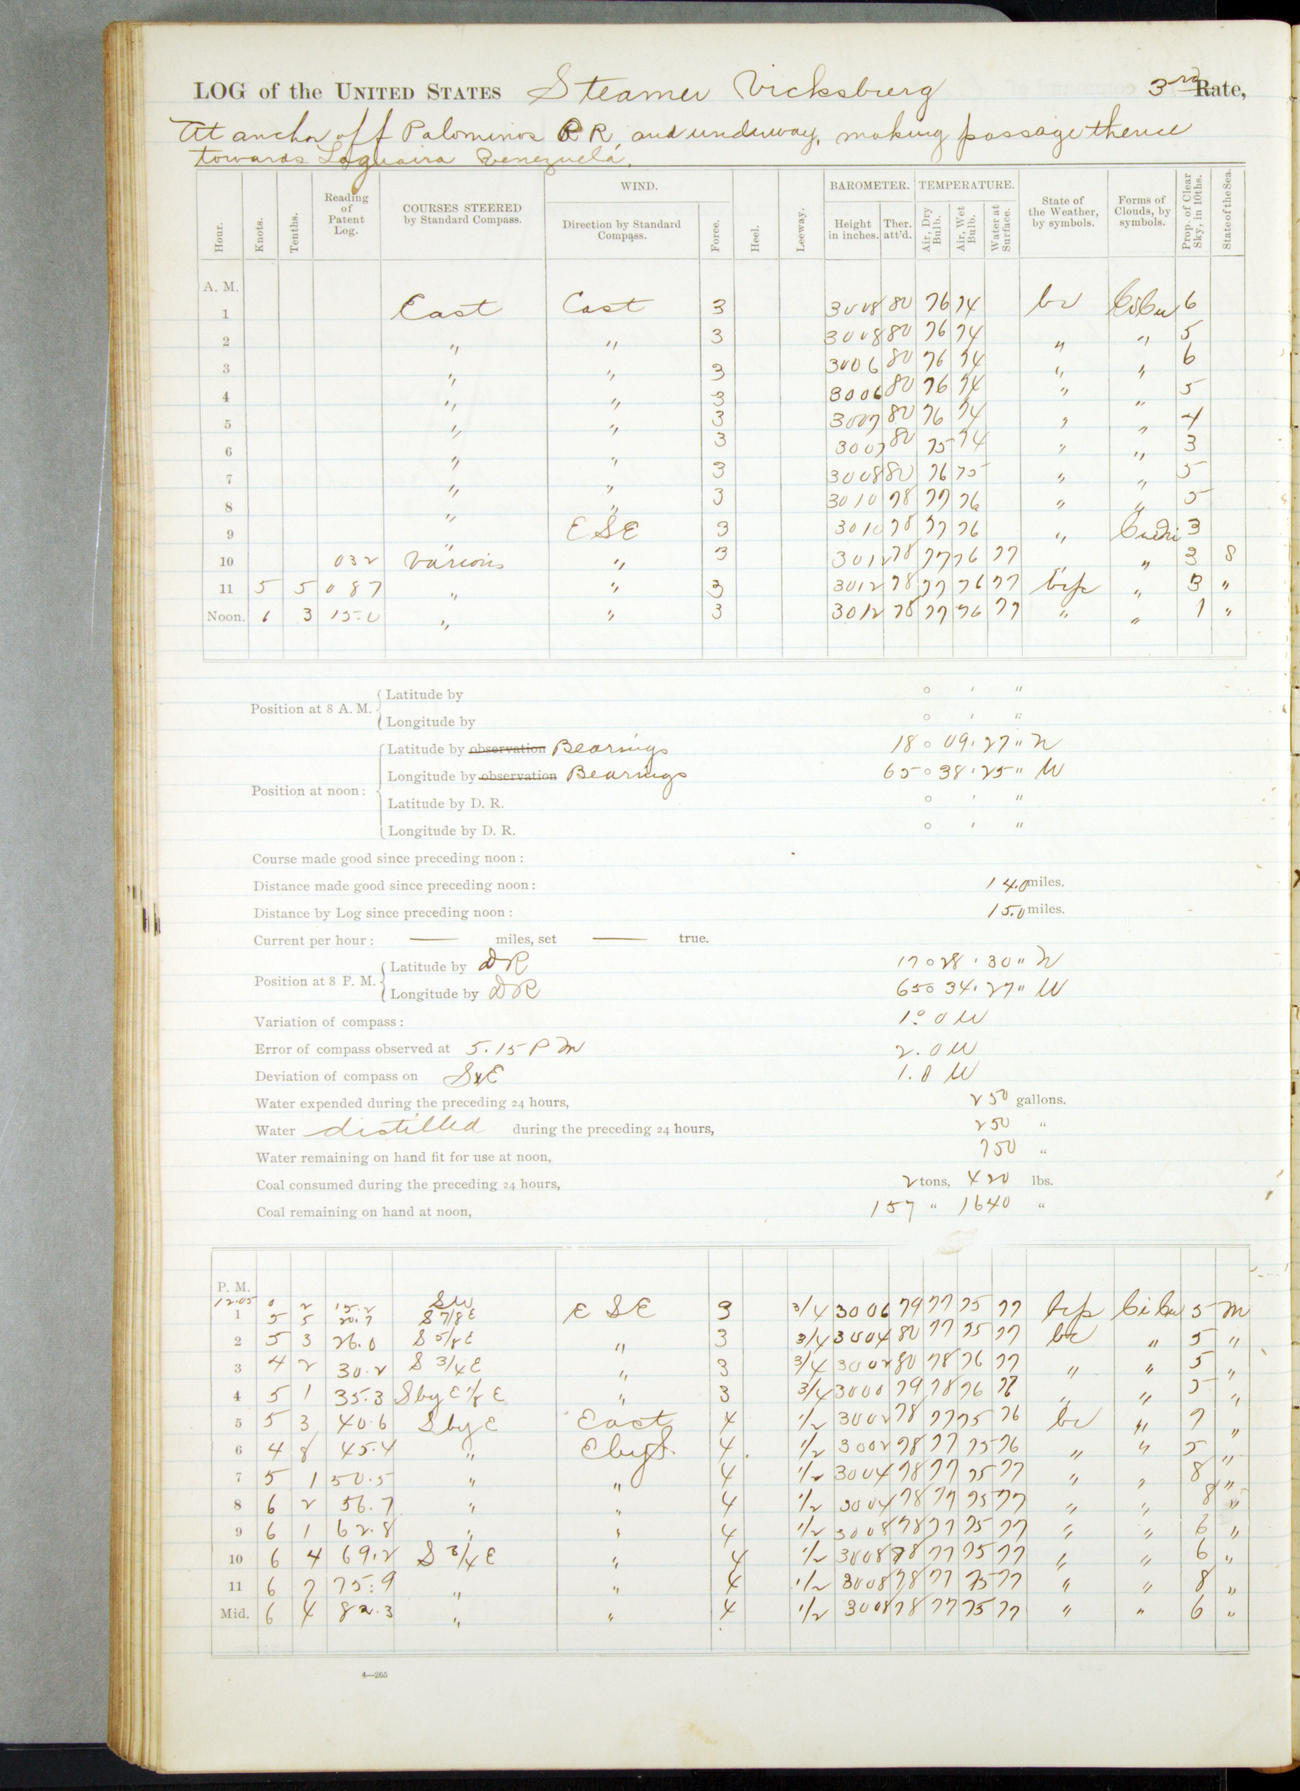 LOG of the UNITED STATES Steamer Vicksburg 3rd Rate,
At anchor off Palominos P R, and underway, making passage thence
towards Laguaira Venezuela.
Hour. Knots. Tenths. Reading of Patent Log. COURSES STEERED by Standard Compass. WIND. Direction by Standard Compass. Force. Heel. Leeway. BAROMETER. Height in inches. Ther. att'd. TEMPERATURE. Air, Dry Bulb. Air, Wet Bulb. Water at Surface. State of the Weather, by symbols. Forms of Clouds, by symbols. Prop. of Clear Sky, in 10ths. State of the Sea.
A. M.
1 East East 3 3008 80 76 74 bc CiCu 6
2 " " 3 3008 80 76 74 " " 5
3 " " 3 3006 80 76 74 " " 6
4 " " 3 3006 80 76 74 " " 5
5 " " 3 3007 80 76 74 " " 4
6 " " 3 3007 80 75 74 " " 3
7 " " 3 3008 80 76 75 " " 5
8 " " 3 3010 78 77 76 " " 5
9 " ESE 3 3010 78 77 76 " 3
10 032 Various " 3 3012 78 77 76 77 " " 3 8
11 5 5 087 " " 3 3012 78 77 76 77 bcp " 3 "
Noon. 6 3 15.0 " " 3 3012 78 77 76 77 " " 1 "
Position at 8 A. M. Latitude by ° ' "
Longitude by ° ' "
Position at noon: Latitude by observation Bearings 18° 09' 27" N
Longitude by observation Bearings 65° 38' 25" W
Latitude by D. R. ° ' "
Longitude by D. R. ° ' "
Course made good since preceding noon:
Distance made good since preceding noon: 14.0 miles.
Distance by Log since preceding noon: 15.0 miles.
Current per hour: — miles, set — true.
Position at 8 P. M. Latitude by DR 17° 28' 30" N
Longitude by DR 65° 34' 27" W
Variation of compass: 1° 0 W
Error of compass observed at 5.15 P M 2.0 W
Deviation of compass on SxE 1.0 W
Water expended during the preceding 24 hours, 250 gallons.
Water distilled during the preceding 24 hours, 250 "
Water remaining on hand fit for use at noon, 750 "
Coal consumed during the preceding 24 hours, 2 tons, 420 lbs.
Coal remaining on hand at noon, 157 " 1640 "
P. M.
12.05 0 2 15.2 SW
1 5 5 20.7 S 7/8 E ESE 3 3/4 3006 79 77 75 77 bcp CiCu 5 M
2 5 3 26.0 S 5/8 E " 3 3/4 3004 80 77 75 77 bc " 5 "
3 4 2 30.2 S 3/4 E " 3 3/4 3002 80 78 76 77 " " 5 "
4 5 1 35.3 S by E 1/8 E " 3 3/4 3000 79 78 76 78 " " 5 "
5 5 3 40.6 S by E East 4 1/2 3002 78 77 75 76 bc " 7 "
6 4 8 45.4 " E by S. 4 1/2 3002 78 77 75 76 " " 5 "
7 5 1 50.5 " " 4 1/2 3004 78 77 75 77 " " 8 "
8 6 2 56.7 " " 4 1/2 3004 78 77 75 77 " " 8 "
9 6 1 62.8 " " 4 1/2 3008 78 77 75 77 " " 6 "
10 6 4 69.2 S 3/4 E " 4 1/2 3008 78 77 75 77 " " 6 "
11 6 7 75.9 " " 4 1/2 3008 78 77 75 77 " " 8 "
Mid. 6 4 82.3 " " 4 1/2 3008 78 77 75 77 " " 6 "
4—265